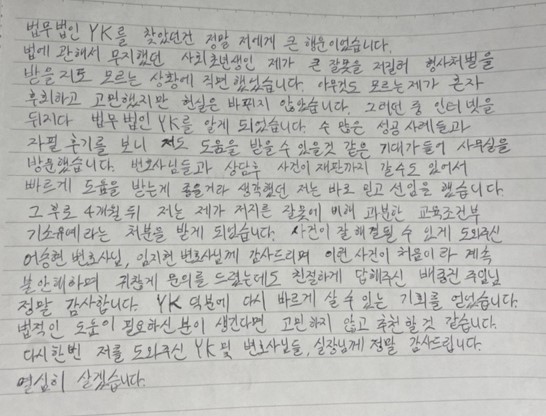 법무법인 YK를 찾았던건 정말 저에게 큰 행운이었습니다.
법에 관해서 무지했던 사회초년생인 제가 큰 잘못을 저질러 형사처벌을
받을지도 모르는 상황에 직면 했었습니다. 아무것도 모르는 제가 혼자
후회하고 고민했지만 현실은 바뀌지 않았습니다. 그러던 중 인터넷을
뒤지다 법무법인 YK를 알게 되었습니다. 수 많은 성공 사례들과
자필 후기를 보니 저도 도움을 받을 수 있을것 같은 기대가 들어 사무실을
방문했습니다. 변호사님들과 상담후 사건이 재판까지 갈수도 있어서
빠르게 도움을 받는게 좋을거라 생각했던 저는 바로 믿고 선임을 했습니다.
그 후로 4개월 뒤 저는 제가 저지른 잘못에 비해 과분한 교육조건부
기소유예라는 처분을 받게 되었습니다. 사건이 잘 해결될 수 있게 도와주신
이승현 변호사님, 임지현 변호사님께 감사드리며 이런 사건이 처음이라 계속
불안해하며 귀찮게 문의를 드렸는데도 친절하게 답해주신 배종진 주임님
정말 감사합니다. YK 덕분에 다시 바르게 살 수 있는 기회를 얻었습니다.
법적인 도움이 필요하신 분이 생긴다면 고민하지 않고 추천할 것 같습니다.
다시한번 저를 도와주신 YK 및 변호사님들, 실장님께 정말 감사드립니다.
열심히 살겠습니다.